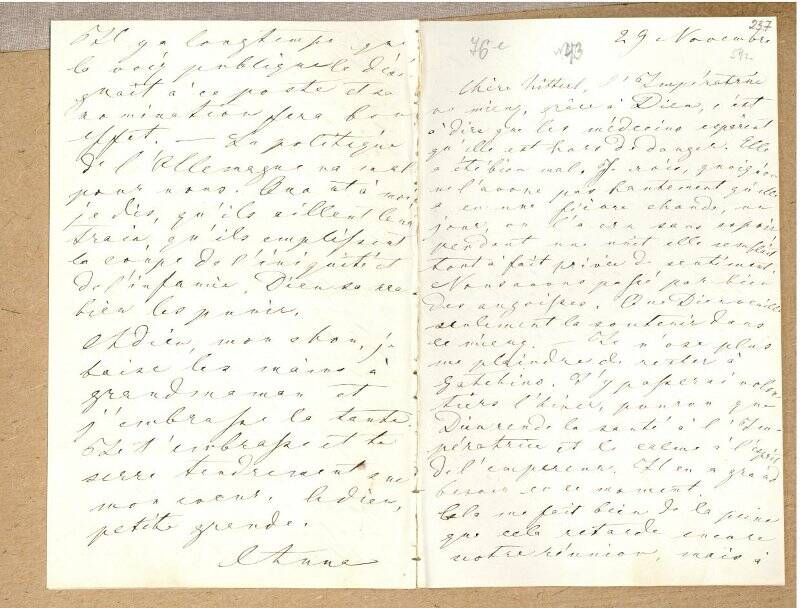 237
76-e
N 43
29 Novembre
Chère Kitter, l'Impératrice
va mieux, grâce à Dieu, c'est
à dire que les médecins espèrent
qu'elle est hors de danger. Elle
a été bien mal. Je crois, quoiqu'on
ne l'avoue pas hautement qu'elle
a eu une fièvre chaude, un
jour, on l'a cru sans espoir
pendant une nuit elle semblait
tout à fait privée de sentiment.
Nous avons passé par bien
des angoisses. Que Dieu veuille
seulement la soutenir dans
ce mieux. — Je n'ose plus
me plaindre de rester à
Gatchino. J'y passerai volon
tiers l'hiver, pourvu que
Dieu rende la santé à l'Im-
pératrice et le calme à l'esprit
de l'empereur. Il en a grand
besoin en ce moment.
Cela me fait bien de la peine
que cela retarde encore
notre réunion, mais à
Il y a longtemps que
la voix publique le dési
gnait à ce poste et sa
nomination fera bon
effet. — La politique
de l'Allemagne va mal
pour nous. Quant à moi
je dis, qu'ils aillent leur
train, qu'ils emplissent
la coupe de l'iniquité et
de l'infamie. Dieu saura
bien les punir.
Adieu, mon chou, je
baise les mains à
grandmaman et
j'embrasse la tante.
Je t'embrasse et te
serre tendrement sur
mon coeur. Adieu,
petite grande.
Anna